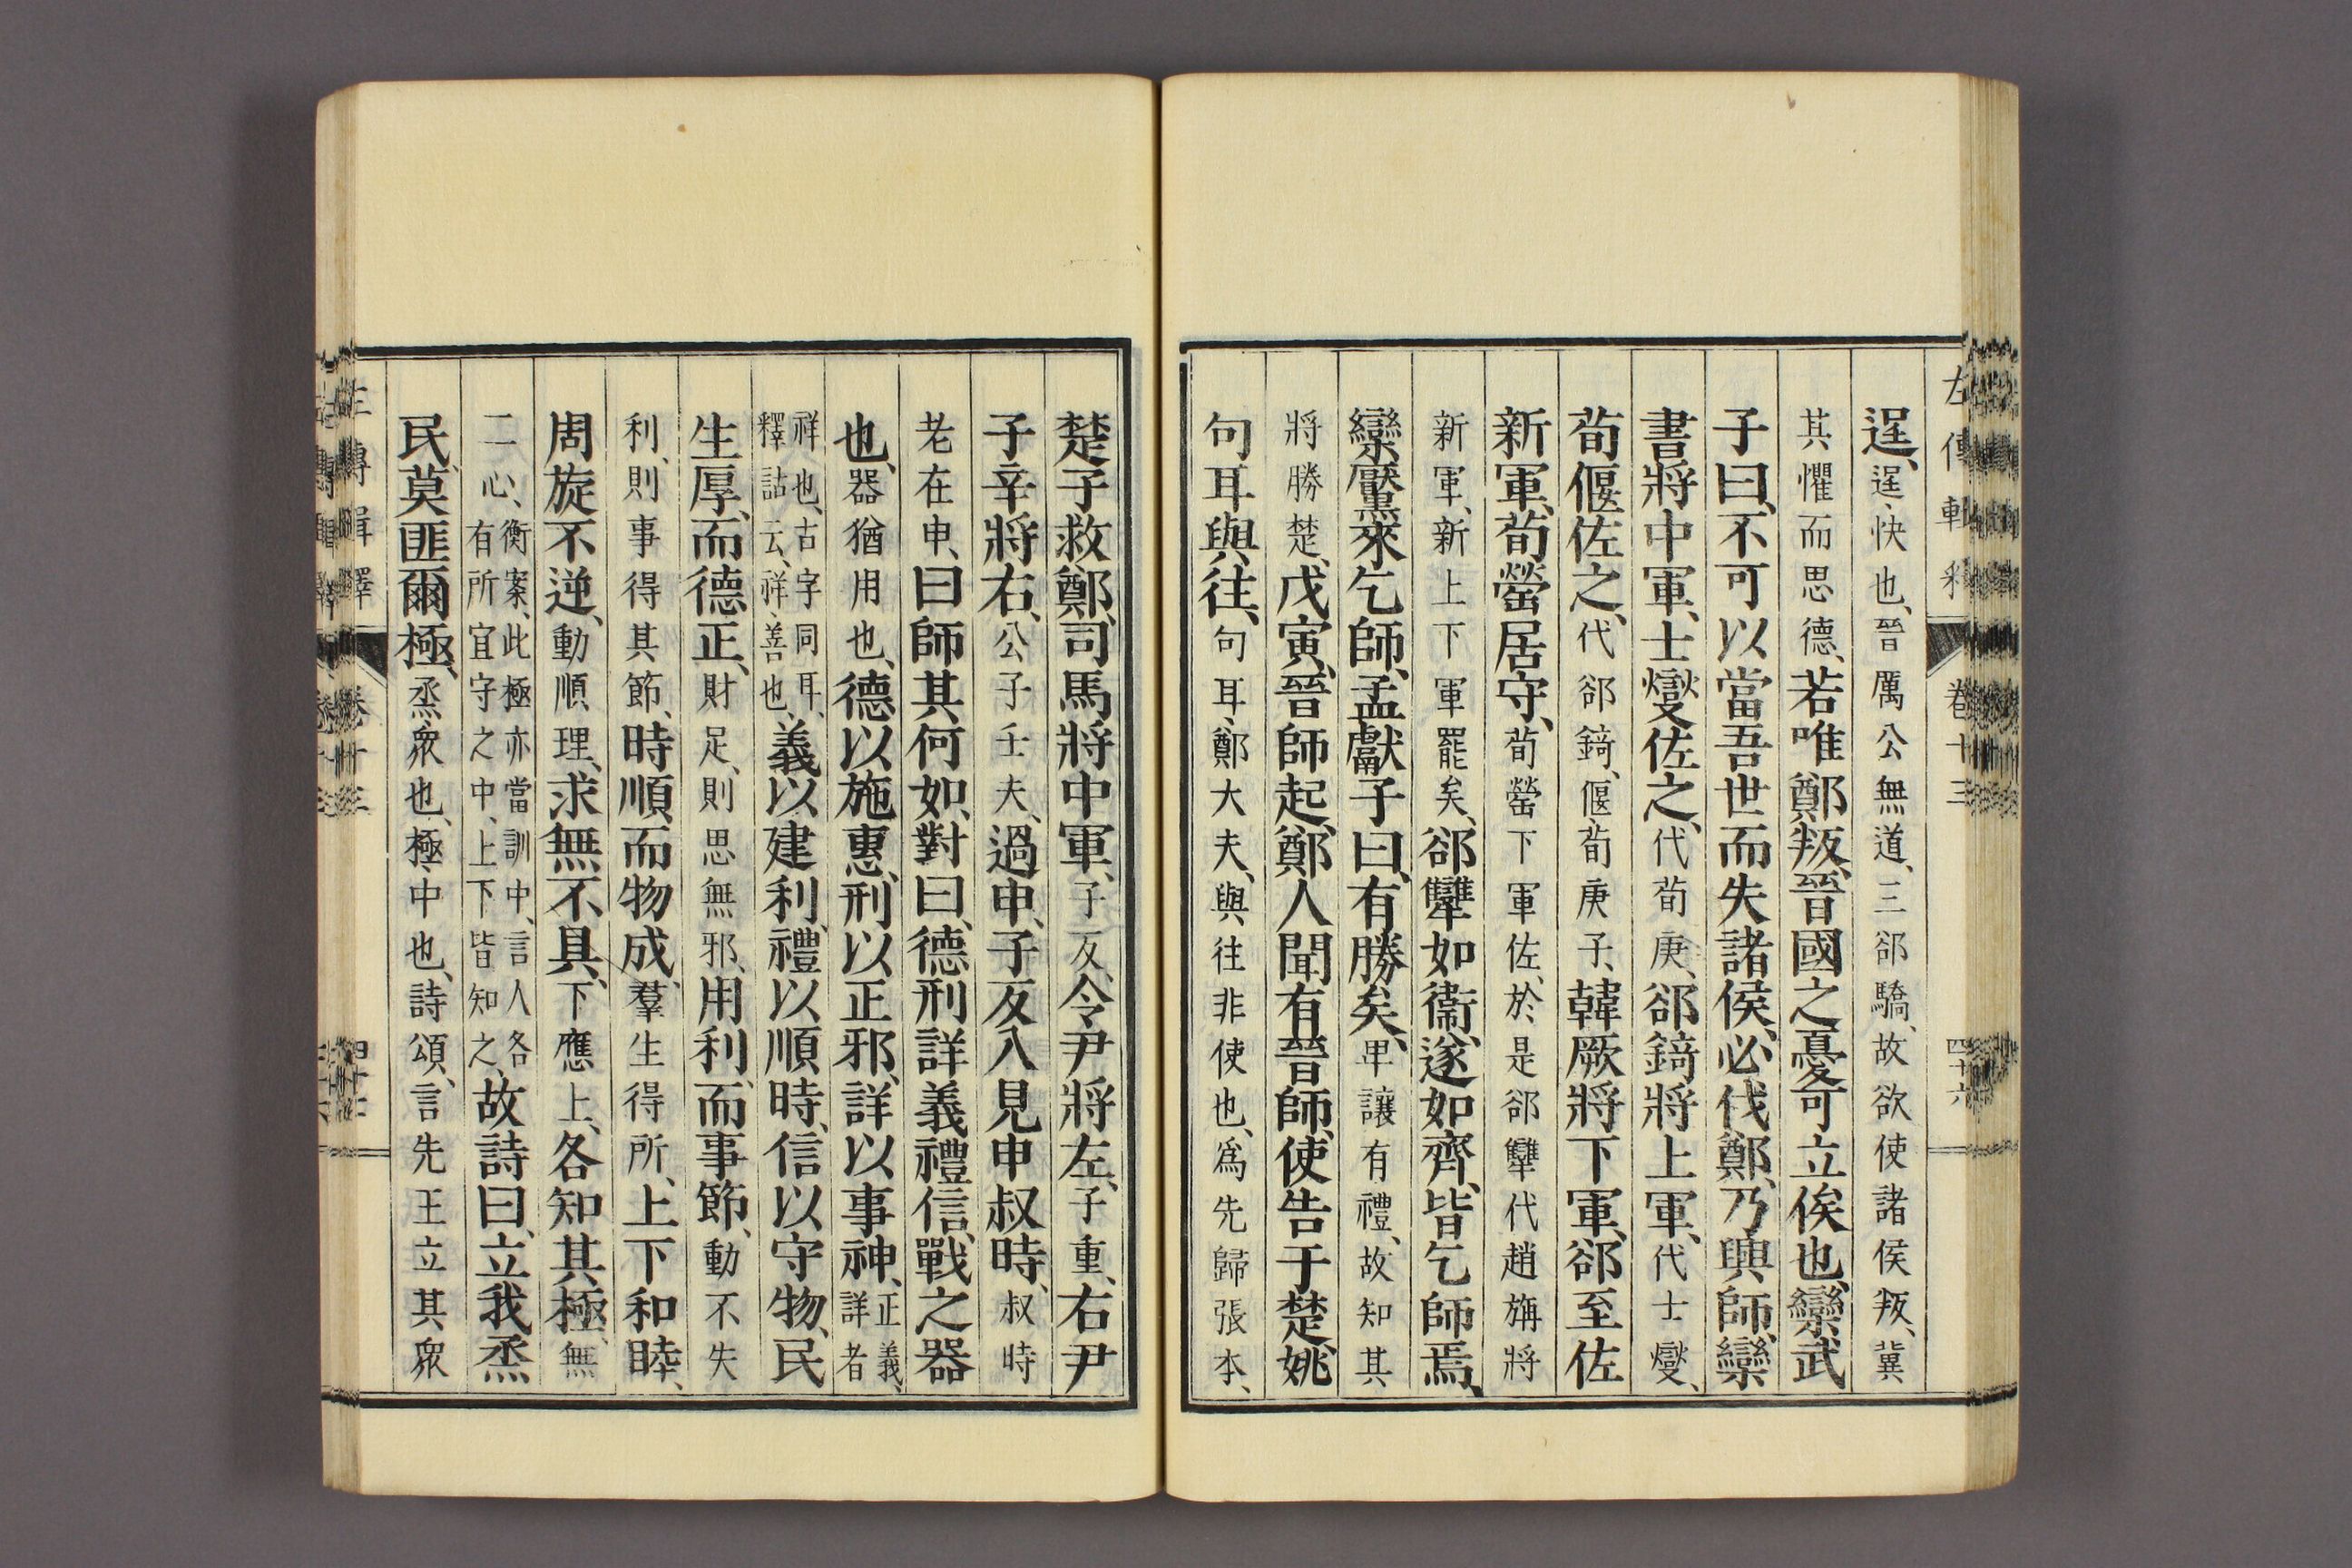 逞、逞、快也、晉厲公無道、三郤驕、故欲使諸侯叛、冀
其懼而思德、若唯鄭叛、晉國之憂可立俟也、欒武
子曰、不可以當吾世而失諸侯、必伐鄭、乃興師、欒
書將中軍、士燮佐之、代荀庚、郤錡將上軍、代士燮、
荀偃佐之、代郤錡、偃荀庚子、韓厥將下軍、郤至佐
新軍、荀罃居守、荀罃下軍佐、於是郤犨代趙旃將
新軍、新上下軍罷矣、郤犨如衞、遂如齊、皆乞師焉、
欒黶來乞師、孟獻子曰、有勝矣、卑讓有禮、故知其
將勝楚、戊寅、晉師起、鄭人聞有晉師、使告于楚、姚
句耳與往、句耳、鄭大夫、與往非使也、爲先歸張本、
楚子救鄭、司馬將中軍、子反、令尹將左、子重、右尹
子辛將右、公子壬夫、過申、子反入見申叔時、叔時
老在申、曰師其何如、對曰、德刑詳義禮信、戰之器
也、器猶用也、德以施惠、刑以正邪、詳以事神、正義、詳者
祥也、古字同耳、釋詁云、祥、善也、義以建利、禮以順時、信以守物、民
生厚、而德正、財足、則思無邪、用利、而事節、動不失
利、則事得其節、時順、而物成、羣生得所、上下和睦、
周旋不逆、動順理、求無不具、下應上、各知其極、無
二心、衡案、此極亦當訓中、言人各有所宜守之中、上下皆知之、故詩曰、立我烝
民、莫匪爾極、烝、衆也、極、中也、詩頌、言先王立其衆